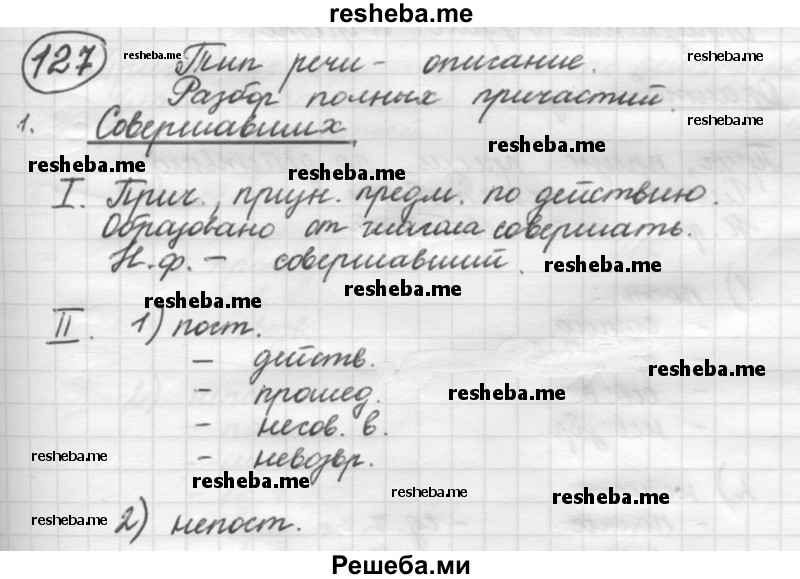 resheba.me
127 resheba.me Тип речи - описание. resheba.me
Разбор полных причастий. resheba.me
1. Совершавших
resheba.me resheba.me resheba.me
I. Прич., призн. предм. по действию.
Образовано от глагола совершать.
Н.ф. - совершавший. resheba.me
resheba.me resheba.me
II. 1) пост.
- действ.
resheba.me
- прошед. resheba.me
- несов. в.
resheba.me - невозвр.
resheba.me resheba.me resheba.me
resheba.me 2) непост.
Решеба.ми